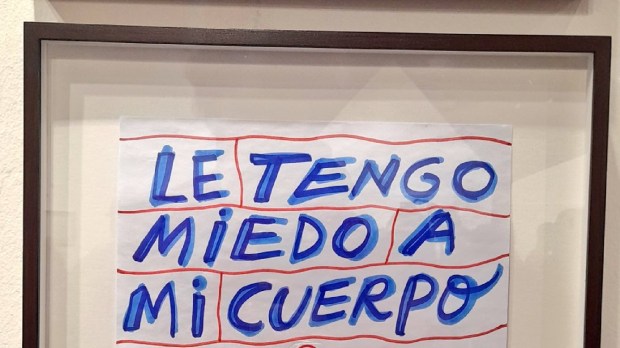 LE TENGO
MiEDO A
Mi CUERPO